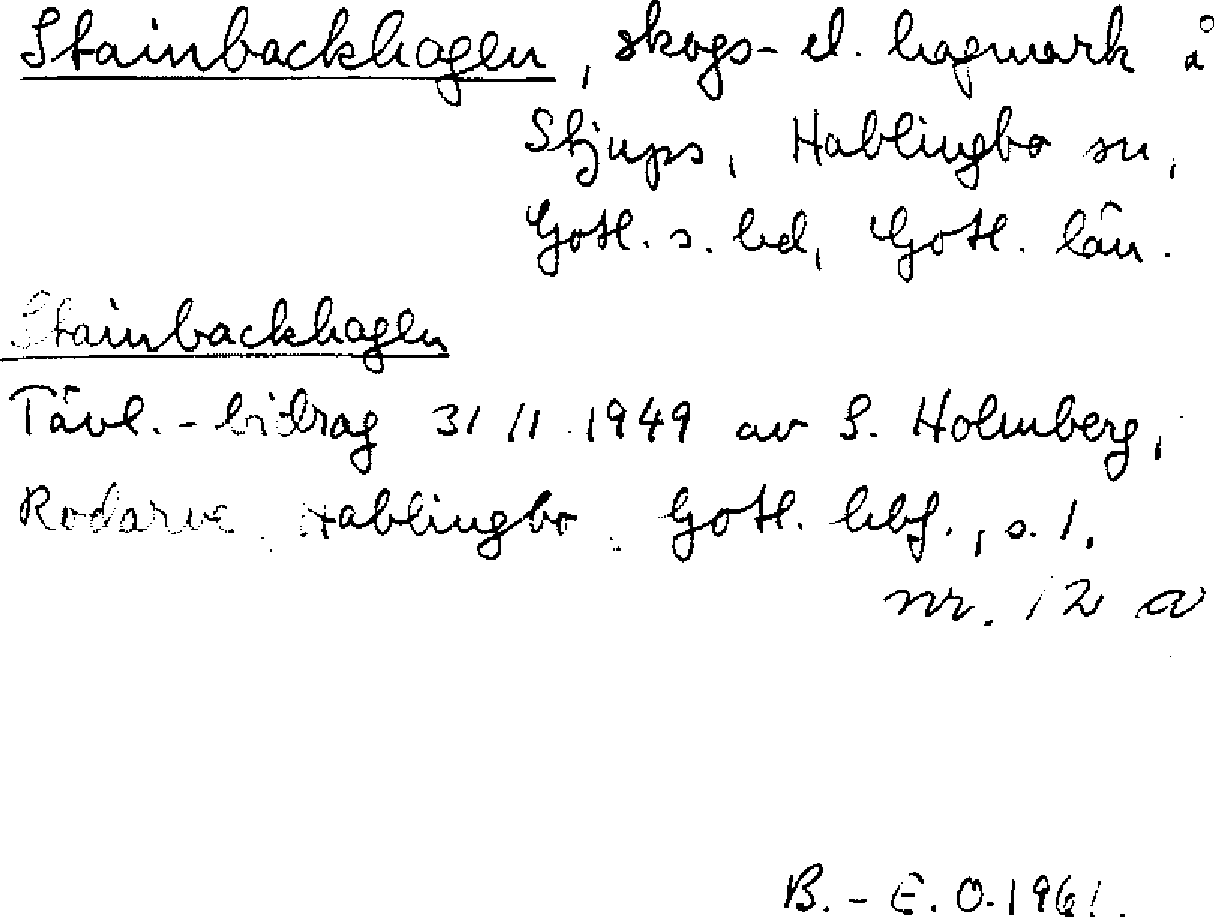 Stainbackhagen, skogs- el. hagmark å
Stjups, Hablingbo sn,
Gotl. s. hd, Gotl. län.
Stainbackhagen
Tävl.-bidrag 31/1 1949 av S. Holmberg,
Rodarve, Hablingbo. Gotl. hbf., s. 1.
nr. 12 a
B.-E. O. 1961.